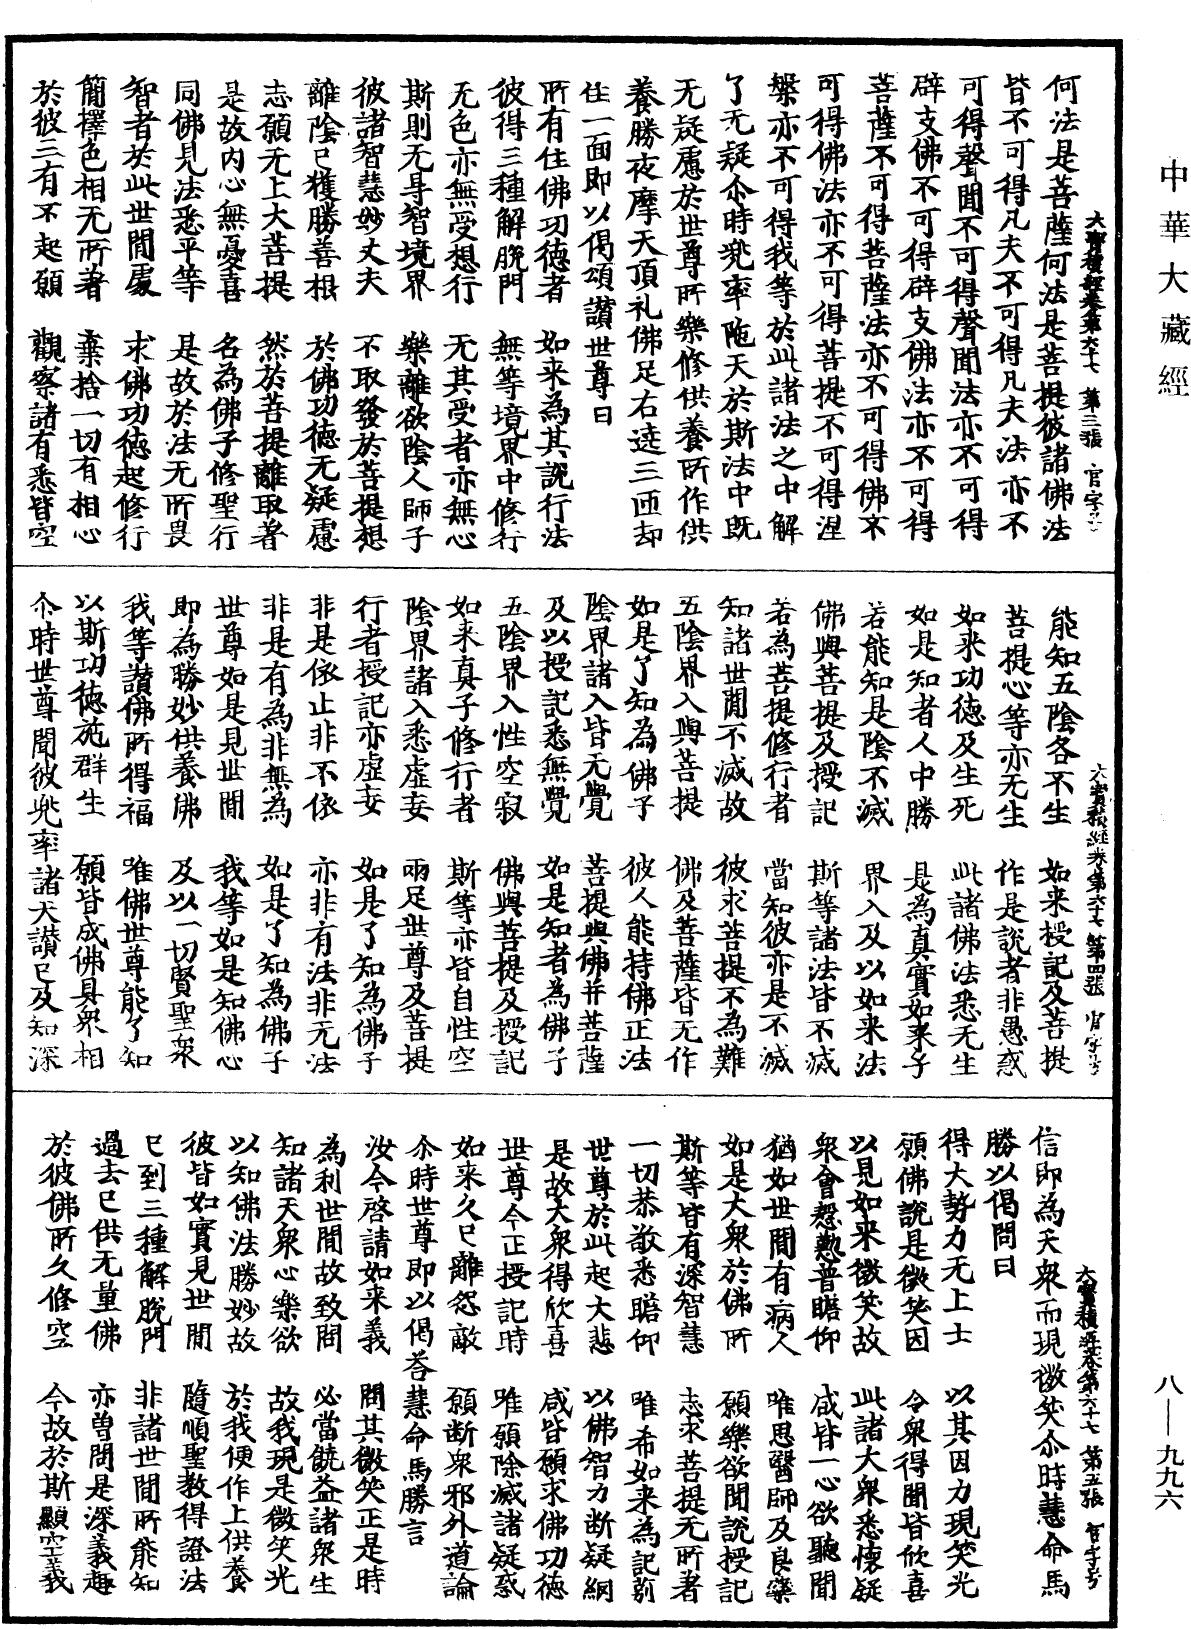 中華大藏經
八—九九六
大寶積經卷第六十七 第三張 官字号
何法是菩薩何法是菩提彼諸佛法
皆不可得凡夫不可得凡夫法亦不
可得聲聞不可得聲聞法亦不可得
辟支佛不可得辟支佛法亦不可得
菩薩不可得菩薩法亦不可得佛不
可得佛法亦不可得菩提不可得涅
槃亦不可得我等於此諸法之中解
了无疑尒時兜率陁天於斯法中既
无疑慮於世尊所樂修供養所作供
養勝夜摩天頂礼佛足右遶三匝却
住一面即以偈頌讚世尊曰
所有住佛功德者 如来為其說行法
彼得三種解脫門 無等境界中修行
无色亦無受想行 无其受者亦無心
斯則无㝵智境界 樂離欲陰人師子
彼諸智慧妙丈夫 不取發於菩提想
離陰已獲勝善根 於佛功德无疑慮
志願无上大菩提 然於菩提離取著
是故內心無憂喜 名為佛子修聖行
同佛見法悉平等 是故於法无所畏
智者於此世間處 求佛功德起修行
簡擇色相无所著 棄捨一切有相心
於彼三有不起願 觀察諸有悉皆空
大寶積經卷第六十七 第四張 官字号
能知五陰各不生 如来授記及菩提
菩提心等亦无生 作是說者非愚惑
如来功德及生死 此諸佛法悉无生
如是知者人中勝 是為真實如来子
若能知是陰不滅 界入及以如来法
佛與菩提及授記 斯等諸法皆不滅
若為菩提修行者 當知彼亦是不滅
知諸世間不滅故 彼求菩提不為難
五陰界入與菩提 佛及菩薩皆无作
如是了知為佛子 彼人能持佛正法
陰界諸入皆无覺 菩提與佛并菩薩
及以授記悉無覺 如是知者為佛子
五陰界入性空寂 佛與菩提及授記
如来真子修行者 斯等亦皆自性空
陰界諸入悉虛妄 兩足世尊及菩提
行者授記亦虛妄 如是了知為佛子
非是依止非不依 亦非有法非无法
非是有為非無為 如是了知為佛子
世尊如是見世間 我等如是知佛心
即為勝妙供養佛 及以一切賢聖衆
我等讚佛所得福 唯佛世尊能了知
以斯功德施群生 願皆成佛具衆相
尒時世尊聞彼兜率諸天讚已及知深
大寶積經卷第六十七 第五張 官字号
信即為天衆而現微笑尒時慧命馬
勝以偈問曰
得大勢力无上士 以其因力現笑光
願佛說是微笑因 令衆得聞皆欣喜
以見如来微笑故 此諸大衆悉懷疑
衆會慇懃普瞻仰 咸皆一心欲聽聞
猶如世間有病人 唯思醫師及良藥
如是大衆於佛所 願樂欲聞說授記
斯等皆有深智慧 志求菩提无所著
一切恭敬悉瞻仰 唯希如来為記莂
世尊於此起大悲 以佛智力斷疑網
是故大衆得欣喜 咸皆願求佛功德
世尊今正授記時 唯願除滅諸疑惑
如来久已離怨敵 願斷衆邪外道論
尒時世尊即以偈荅慧命馬勝言
汝今啓請如来義 問其微笑正是時
為利世間故致問 必當饒益諸衆生
知諸天衆心樂欲 故我現是微笑光
以知佛法勝妙故 於我便作上供養
彼皆如實見世間 隨順聖教得證法
已到三種解脫門 非諸世間所能知
過去已供无量佛 亦曾問是深義趣
於彼佛所久修空 今故於斯顯空義